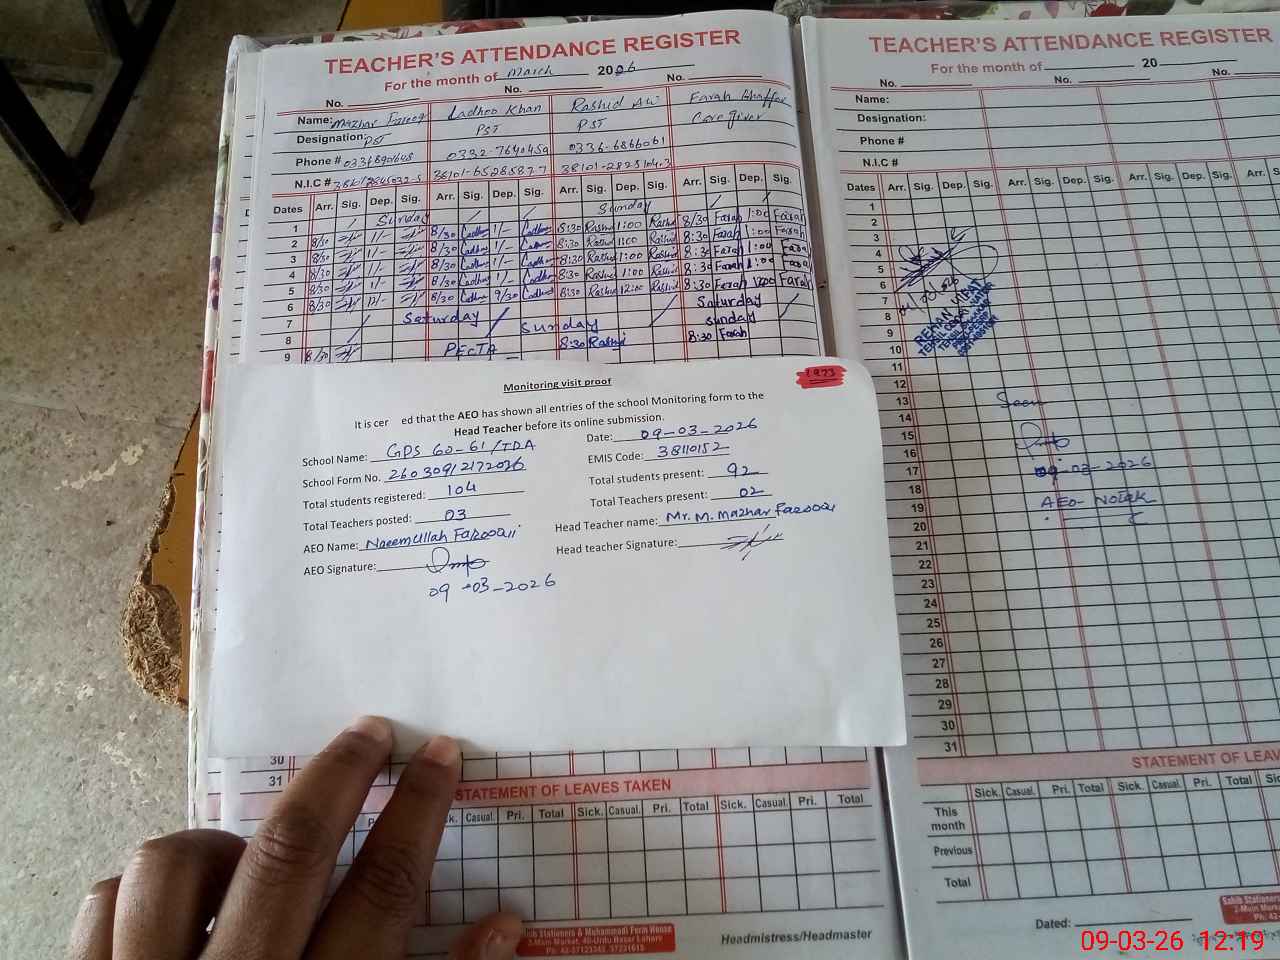 TEACHER'S ATTENDANCE REGISTER
For the month of March 2026
No. No. No.
Name: Mazhar Farooq Ladhoo Khan Rashid Ali Farah Ghaffar
Designation: PST PST PST Care giver
Phone # 0332-7640459 0336-6866061
N.I.C #
Dates Arr. Sig. Dep. Sig. Arr. Sig. Dep. Sig. Arr. Sig. Dep. Sig. Arr. Sig. Dep. Sig.
1 Sunday Sunday
2 8/30 1/- 8/30 Ladhoo 1/- Ladhoo 8:30 Rashid 1:00 Rashid 8/30 Farah 1:00 Farah
3 8/30 1/- 8/30 Ladhoo 1/- Ladhoo 8:30 Rashid 1:00 Rashid 8:30 Farah 1:00 Farah
4 8/30 1/- 8/30 Ladhoo 1/- Ladhoo 8:30 Rashid 1:00 Rashid 8:30 Farah 1:00 Farah
5 8/30 1/- 8/30 Ladhoo 1/- Ladhoo 8:30 Rashid 1:00 Rashid 8:30 Farah 1:00 Farah
6 8/30 12/- 8/30 Ladhoo Ladhoo 8:30 Rashid 12:00 Rashid 8:30 Farah 12:00 Farah
7 Saturday Saturday
8 Sunday Sunday
9 8/30 PECTA 8:30 Rashid 8:30 Farah
Monitoring visit proof
1973
It is cer ed that the AEO has shown all entries of the school Monitoring form to the
Head Teacher before its online submission.
School Name: GPS 60-61/TDA Date: 09-03-2026
School Form No. 26030912172026 EMIS Code: 38110152
Total students registered: 104 Total students present: 92
Total Teachers posted: 03 Total Teachers present: 02
AEO Name: Naeemullah Farooqi Head Teacher name: Mr. M. Mazhar Farooqi
AEO Signature: Head teacher Signature:
09-03-2026
30
31
STATEMENT OF LEAVES TAKEN
Casual. Pri. Total Sick. Casual. Pri. Total Sick. Casual. Pri. Total
Sahib Stationers & Muhammadi Form House
2-Main Market, 40-Urdu Bazar Lahore
Ph: 42-37123345, 37231615
Headmistress/Headmaster
TEACHER'S ATTENDANCE REGISTER
For the month of 20
No. No. No.
Name:
Designation:
Phone #
N.I.C #
Dates Arr. Sig. Dep. Sig. Arr. Sig. Dep. Sig. Arr. Sig. Dep. Sig. Arr.
1
2
3
4
5
6
7
8
9
10
11
12
13 Seen
14
15
16
17 09-03-2026
18
19 AEO-Notak
20
21
22
23
24
25
26
27
28
29
30
31
STATEMENT OF LEAV
Sick. Casual. Pri. Total Sick. Casual. Pri. Total
This month
Previous
Total
Dated:
Sahib Stationers
2-Main Marke
Ph: 42-
09-03-26 12:19